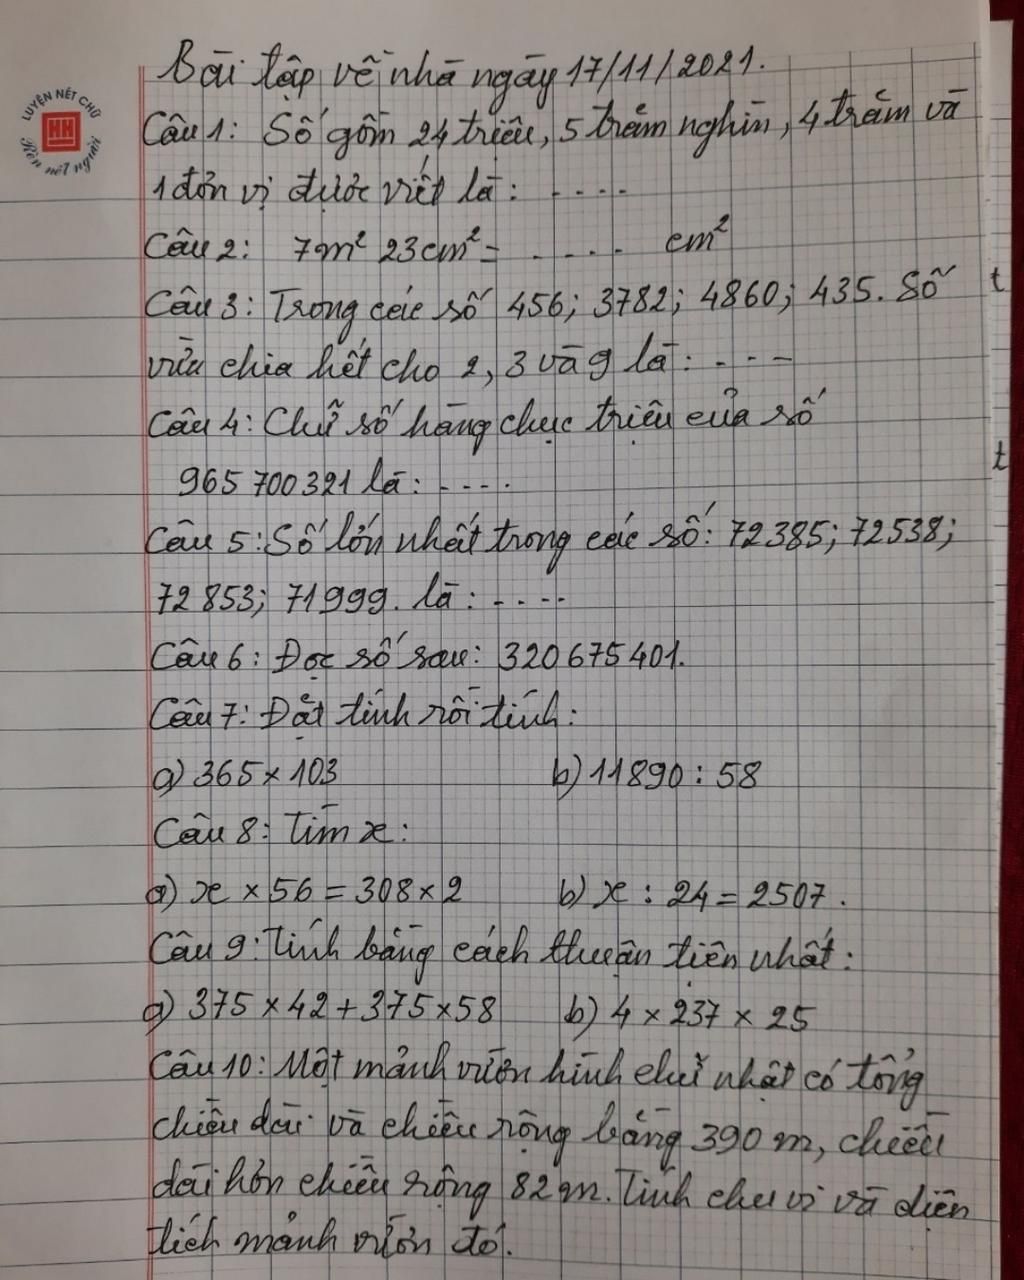 LUYỆN NÉT CHỮ
HH
Rèn nết người
Bài tập về nhà ngày 17/11/2021.
Câu 1: Số gồm 24 triệu, 5 trăm nghìn, 4 trăm và
1 đơn vị được viết là: ....
Câu 2: 7m² 23cm² = .... cm²
Câu 3: Trong các số 456; 3782; 4860; 435. Số
t
vừa chia hết cho 2, 3 và 9 là: ....
Câu 4: Chữ số hàng chục triệu của số
t
965 700 321 là: ....
Câu 5: Số lớn nhất trong các số: 72 385; 72 538;
72 853; 71 999. là: ....
Câu 6: Đọc số sau: 320 675 401.
Câu 7: Đặt tính rồi tính:
a) 365 × 103 b) 11890 : 58
Câu 8: Tìm x:
a) x × 56 = 308 × 2 b) x : 24 = 2507.
Câu 9: Tính bằng cách thuận tiện nhất:
a) 375 × 42 + 375 × 58 b) 4 × 237 × 25
Câu 10: Một mảnh vườn hình chữ nhật có tổng
chiều dài và chiều rộng bằng 390 m, chiều
dài hơn chiều rộng 82 m. Tính chu vi và diện
tích mảnh vườn đó.